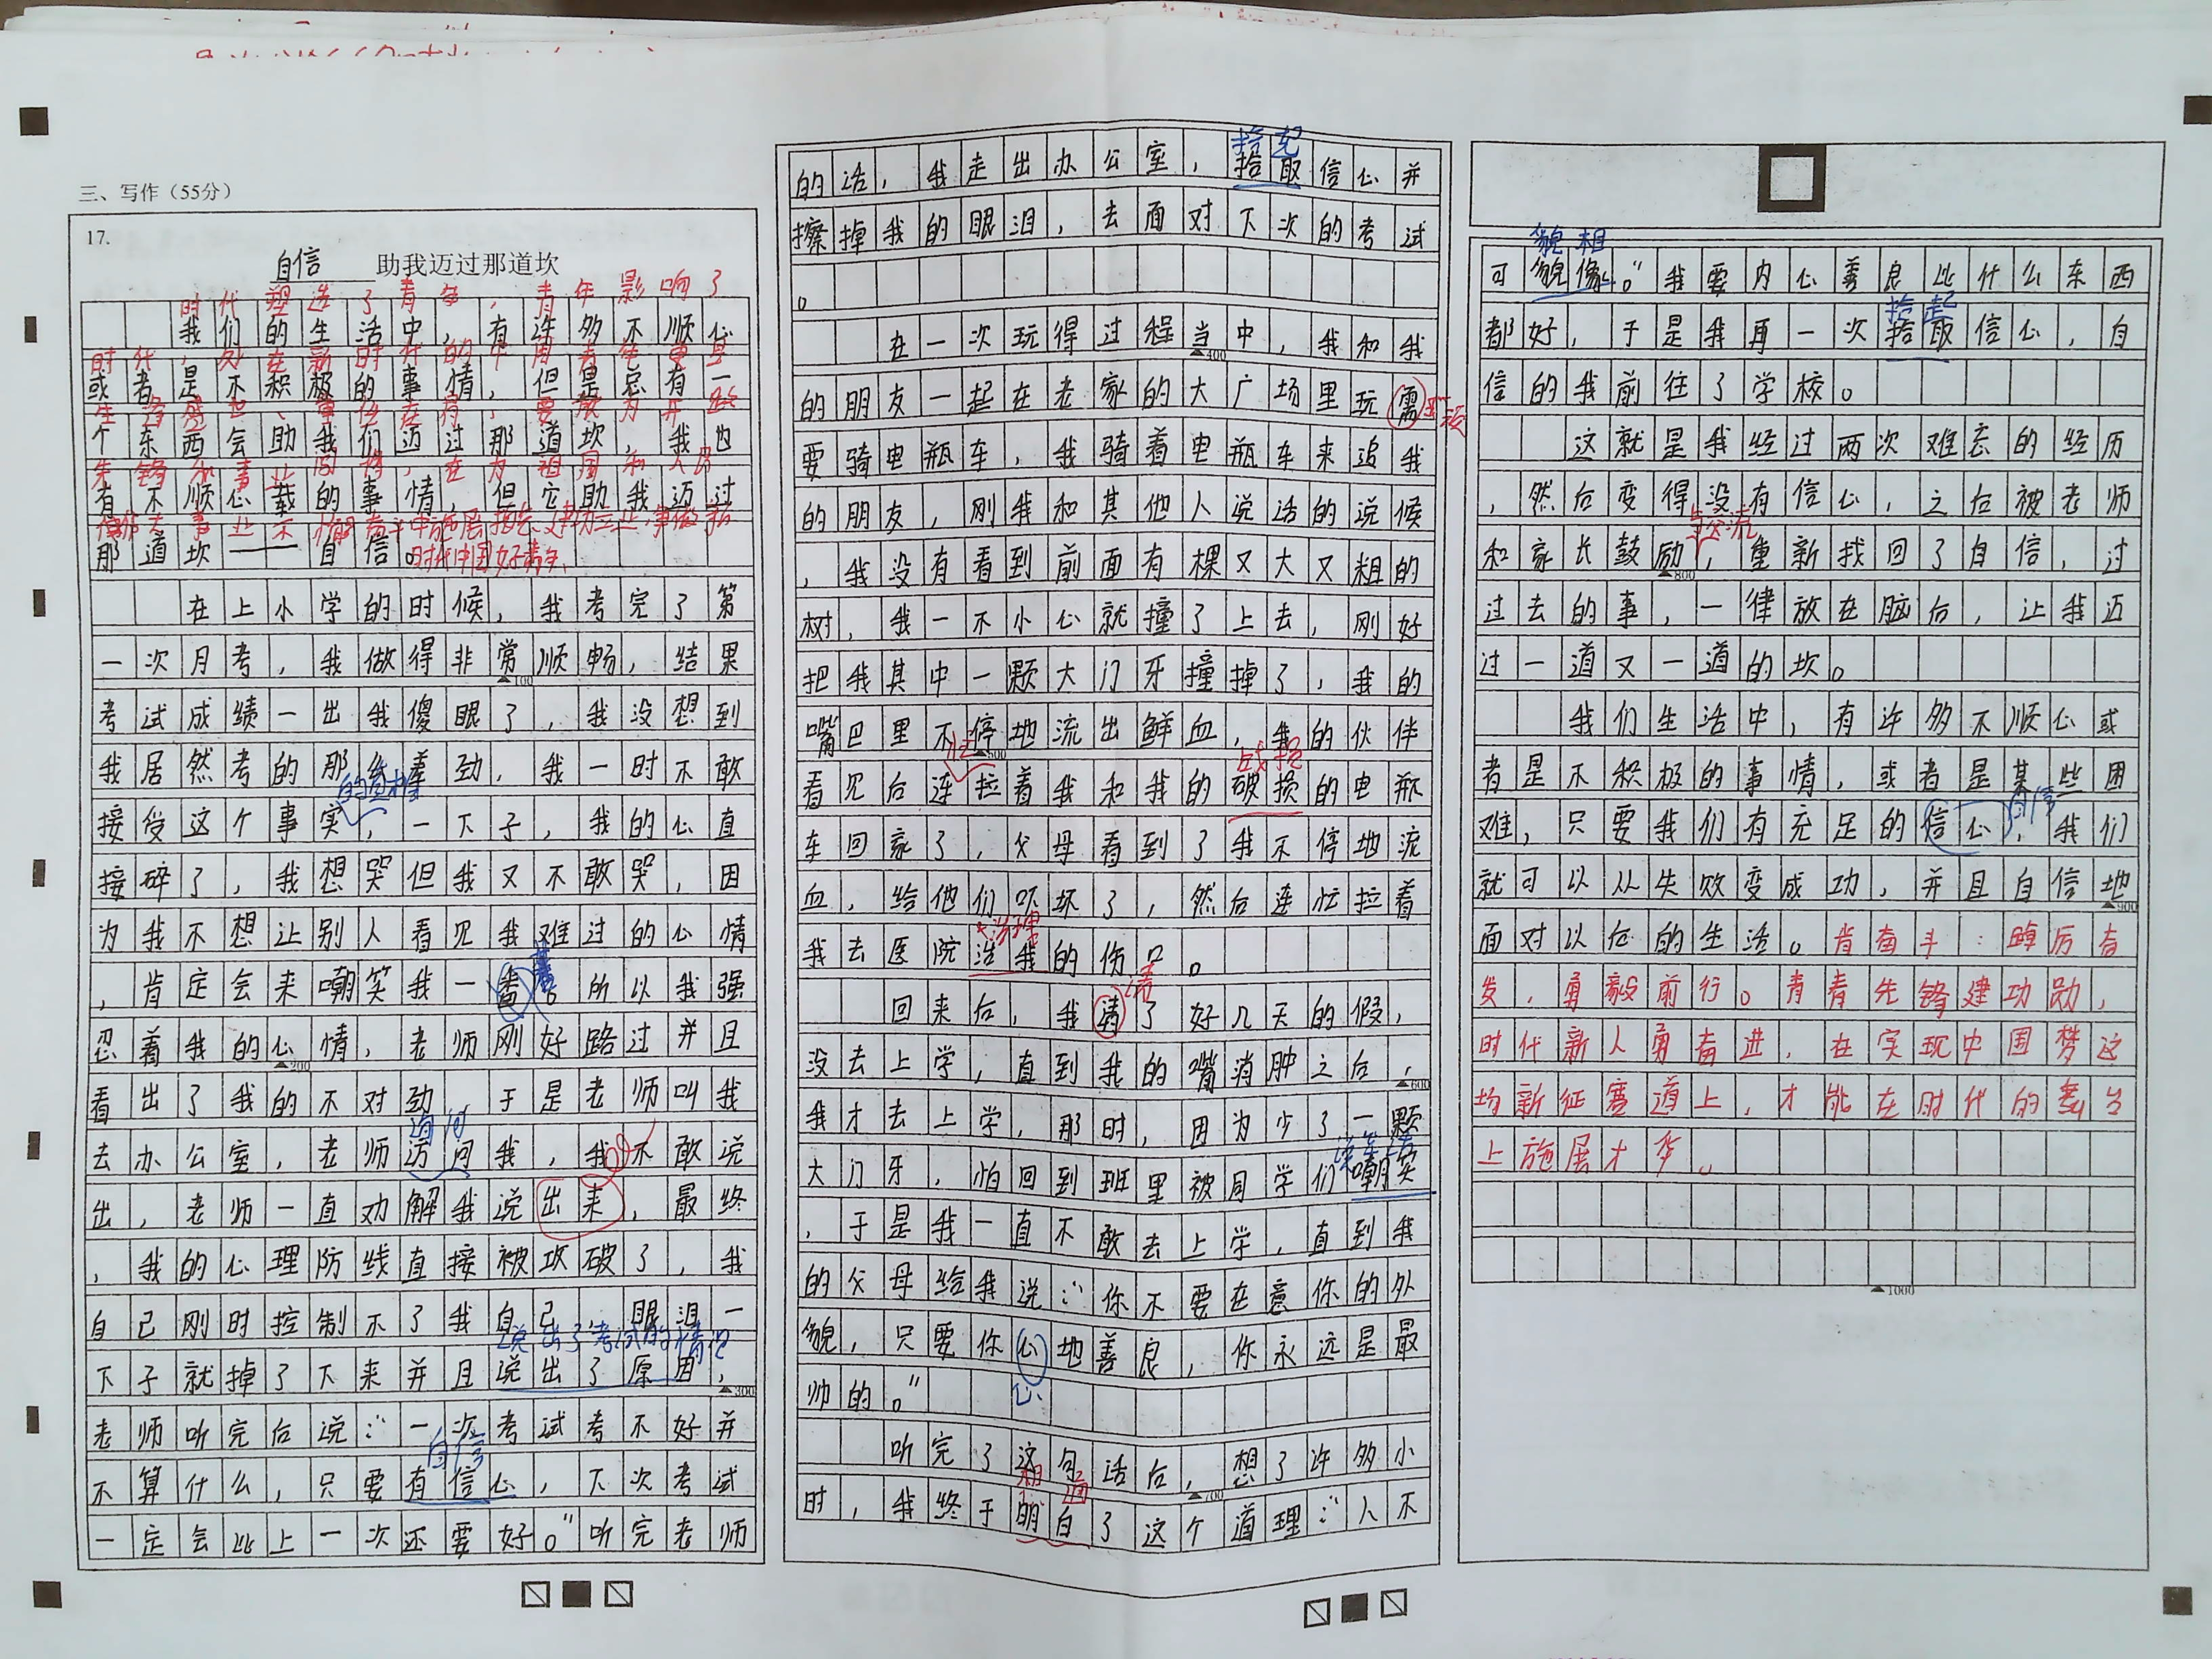 三、写作（55分）
17.
自信 助我迈过那道坎
时代塑造了青年，青年影响了
我们的生活中，有许多不顺心
时代，处在新时代的中国青年更
或者是不积极的事情，但是总有一
个东西会助我们迈过那道坎，我也
有不顺心载的事情，但它助我迈过
那道坎——自信。
时代中国好青年。
在上小学的时候，我考完了第
一次月考，我做得非常顺畅，结果
考试成绩一出我傻眼了，我没想到
我居然考的那么差劲，我一时不敢
接受这个事实，一下子，我的心直
接碎了，我想哭但我又不敢哭，因
为我不想让别人看见我难过的心情
，肯定会来嘲笑我一番。所以我强
忍着我的心情，老师刚好路过并且
看出了我的不对劲，于是老师叫我
询问
去办公室，老师访问我，我不敢说
出，老师一直劝解我说出来，最终
，我的心理防线直接被攻破了，我
自己刚时控制不了我自己，眼泪一
说出了考试的情况
下子就掉了下来并且说出了原因，
老师听完后说：“一次考试考不好并
自信
不算什么，只要有信心，下次考试
一定会比上一次还要好。”听完老师
拾起
的话，我走出办公室，拾取信心并
擦掉我的眼泪，去面对下次的考试
。
在一次玩得过程当中，我和我
的朋友一起在老家的大广场里玩需
要骑电瓶车，我骑着电瓶车来追我
的朋友，刚我和其他人说话的说候
，我没有看到前面有棵又大又粗的
树，我一不小心就撞了上去，刚好
把我其中一颗大门牙撞掉了，我的
嘴巴里不停地流出鲜血，我的伙伴
忙
看见后连拉着我和我的破损的电瓶
车回家了，父母看到了我不停地流
血，给他们吓坏了，然后连忙拉着
我去医院治我的伤口。
请
回来后，我请了好几天的假，
没去上学，直到我的嘴消肿之后，
我才去上学，那时，因为少了一颗
大门牙，怕回到班里被同学们嘲笑
，于是我一直不敢去上学，直到我
的父母给我说：“你不要在意你的外
貌，只要你心地善良，你永远是最
帅的。”
心
听完了这句话后，想了许多小
想通
时，我终于明白了这个道理：“人不
貌相
可貌像。”我要内心善良比什么东西
拾起
都好，于是我再一次拾取信心，自
信的我前往了学校。
这就是我经过两次难忘的经历
，然后变得没有信心，之后被老师
与交流
和家长鼓励，重新找回了自信，过
过去的事，一律放在脑后，让我迈
过一道又一道的坎。
我们生活中，有许多不顺心或
者是不积极的事情，或者是某些困
自信
难，只要我们有充足的信心，我们
就可以从失败变成功，并且自信地
面对以后的生活。肯奋斗：踔厉奋
发，勇毅前行。青青先锋建功勋，
时代新人勇奋进，在实现中国梦这
场新征赛道上，才能在时代的舞台
上施展才华。
100
200
300
400
500
600
700
800
900
1000